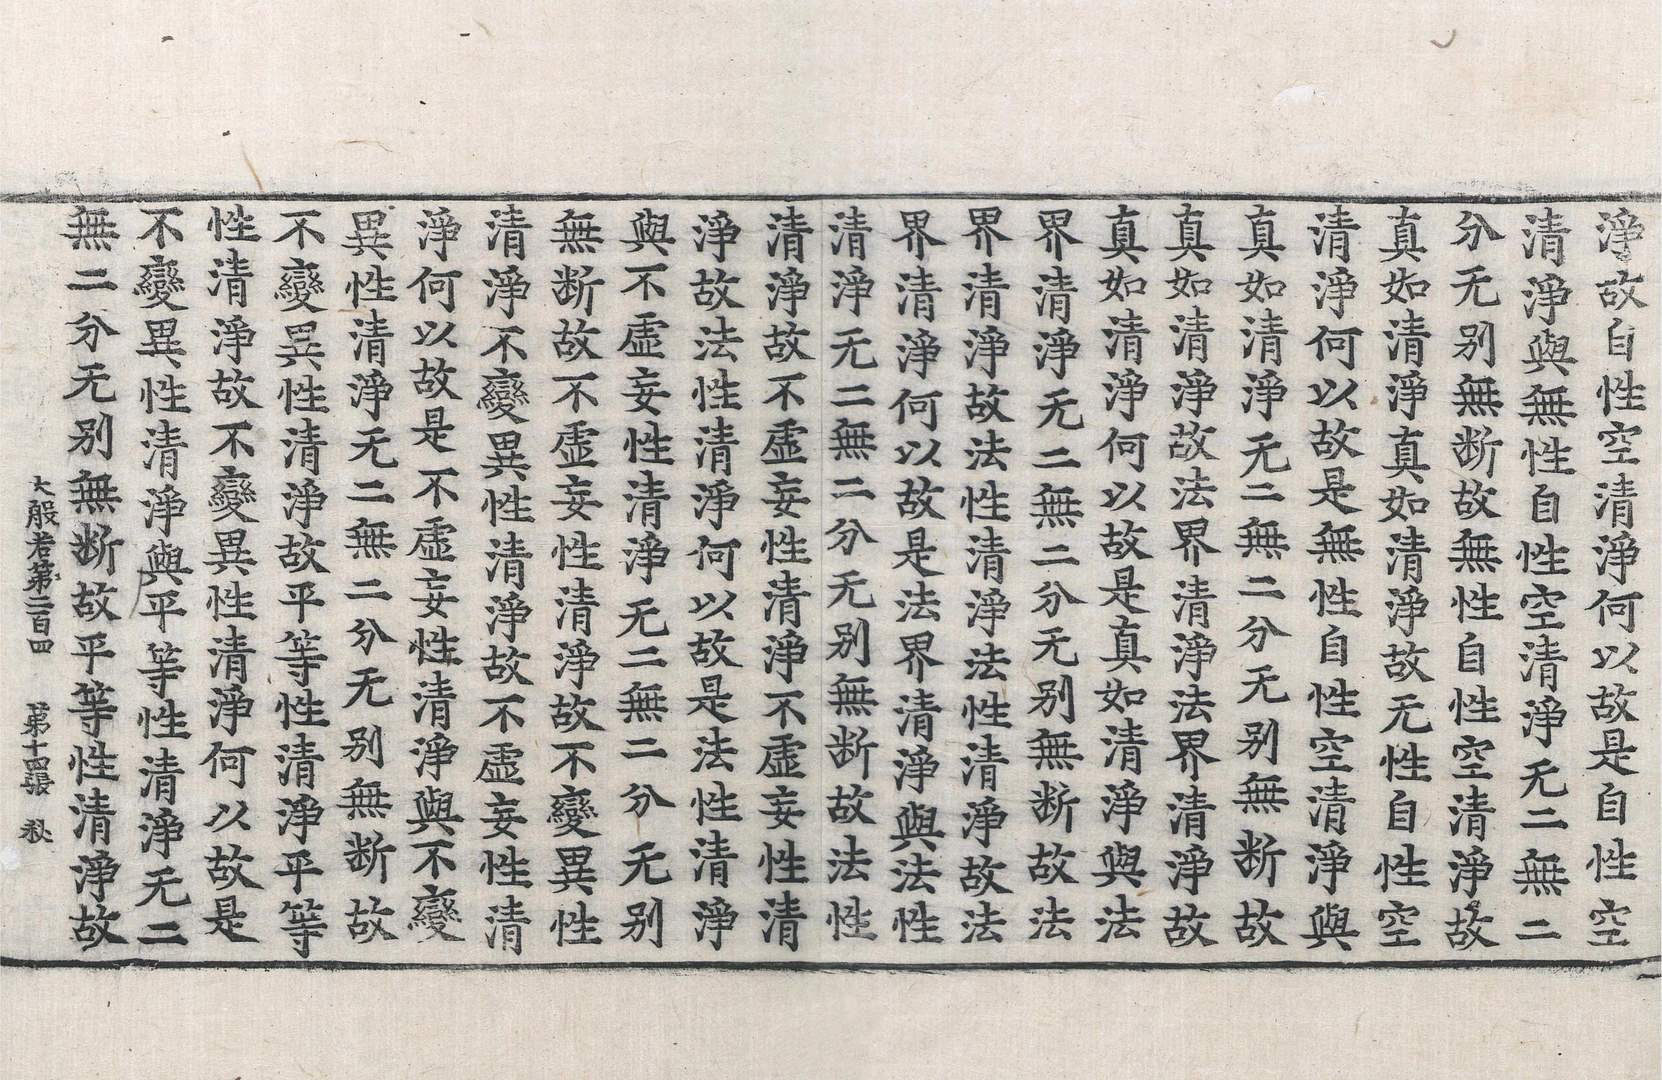 淨故自性空清淨何以故是自性空
清淨與無性自性空清淨无二無二
分无别無断故無性自性空清淨故
真如清淨真如清淨故无性自性空
清淨何以故是無性自性空清淨與
真如清淨无二無二分无别無断故
真如清淨故法界清淨法界清淨故
真如清淨何以故是真如清淨與法
界清淨无二無二分无别無断故法
界清淨故法性清淨法性清淨故法
界清淨何以故是法界清淨與法性
清淨无二無二分无别無断故法性
清淨故不虛妄性清淨不虛妄性清
淨故法性清淨何以故是法性清淨
與不虛妄性清淨无二無二分无别
無断故不虛妄性清淨故不變異性
清淨不變異性清淨故不虛妄性清
淨何以故是不虛妄性清淨與不變
異性清淨无二無二分无别無断故
不變異性清淨故平等性清淨平等
性清淨故不變異性清淨何以故是
不變異性清淨與平等性清淨无二
無二分无别無断故平等性清淨故
大般若第二百四 第十四張 秋